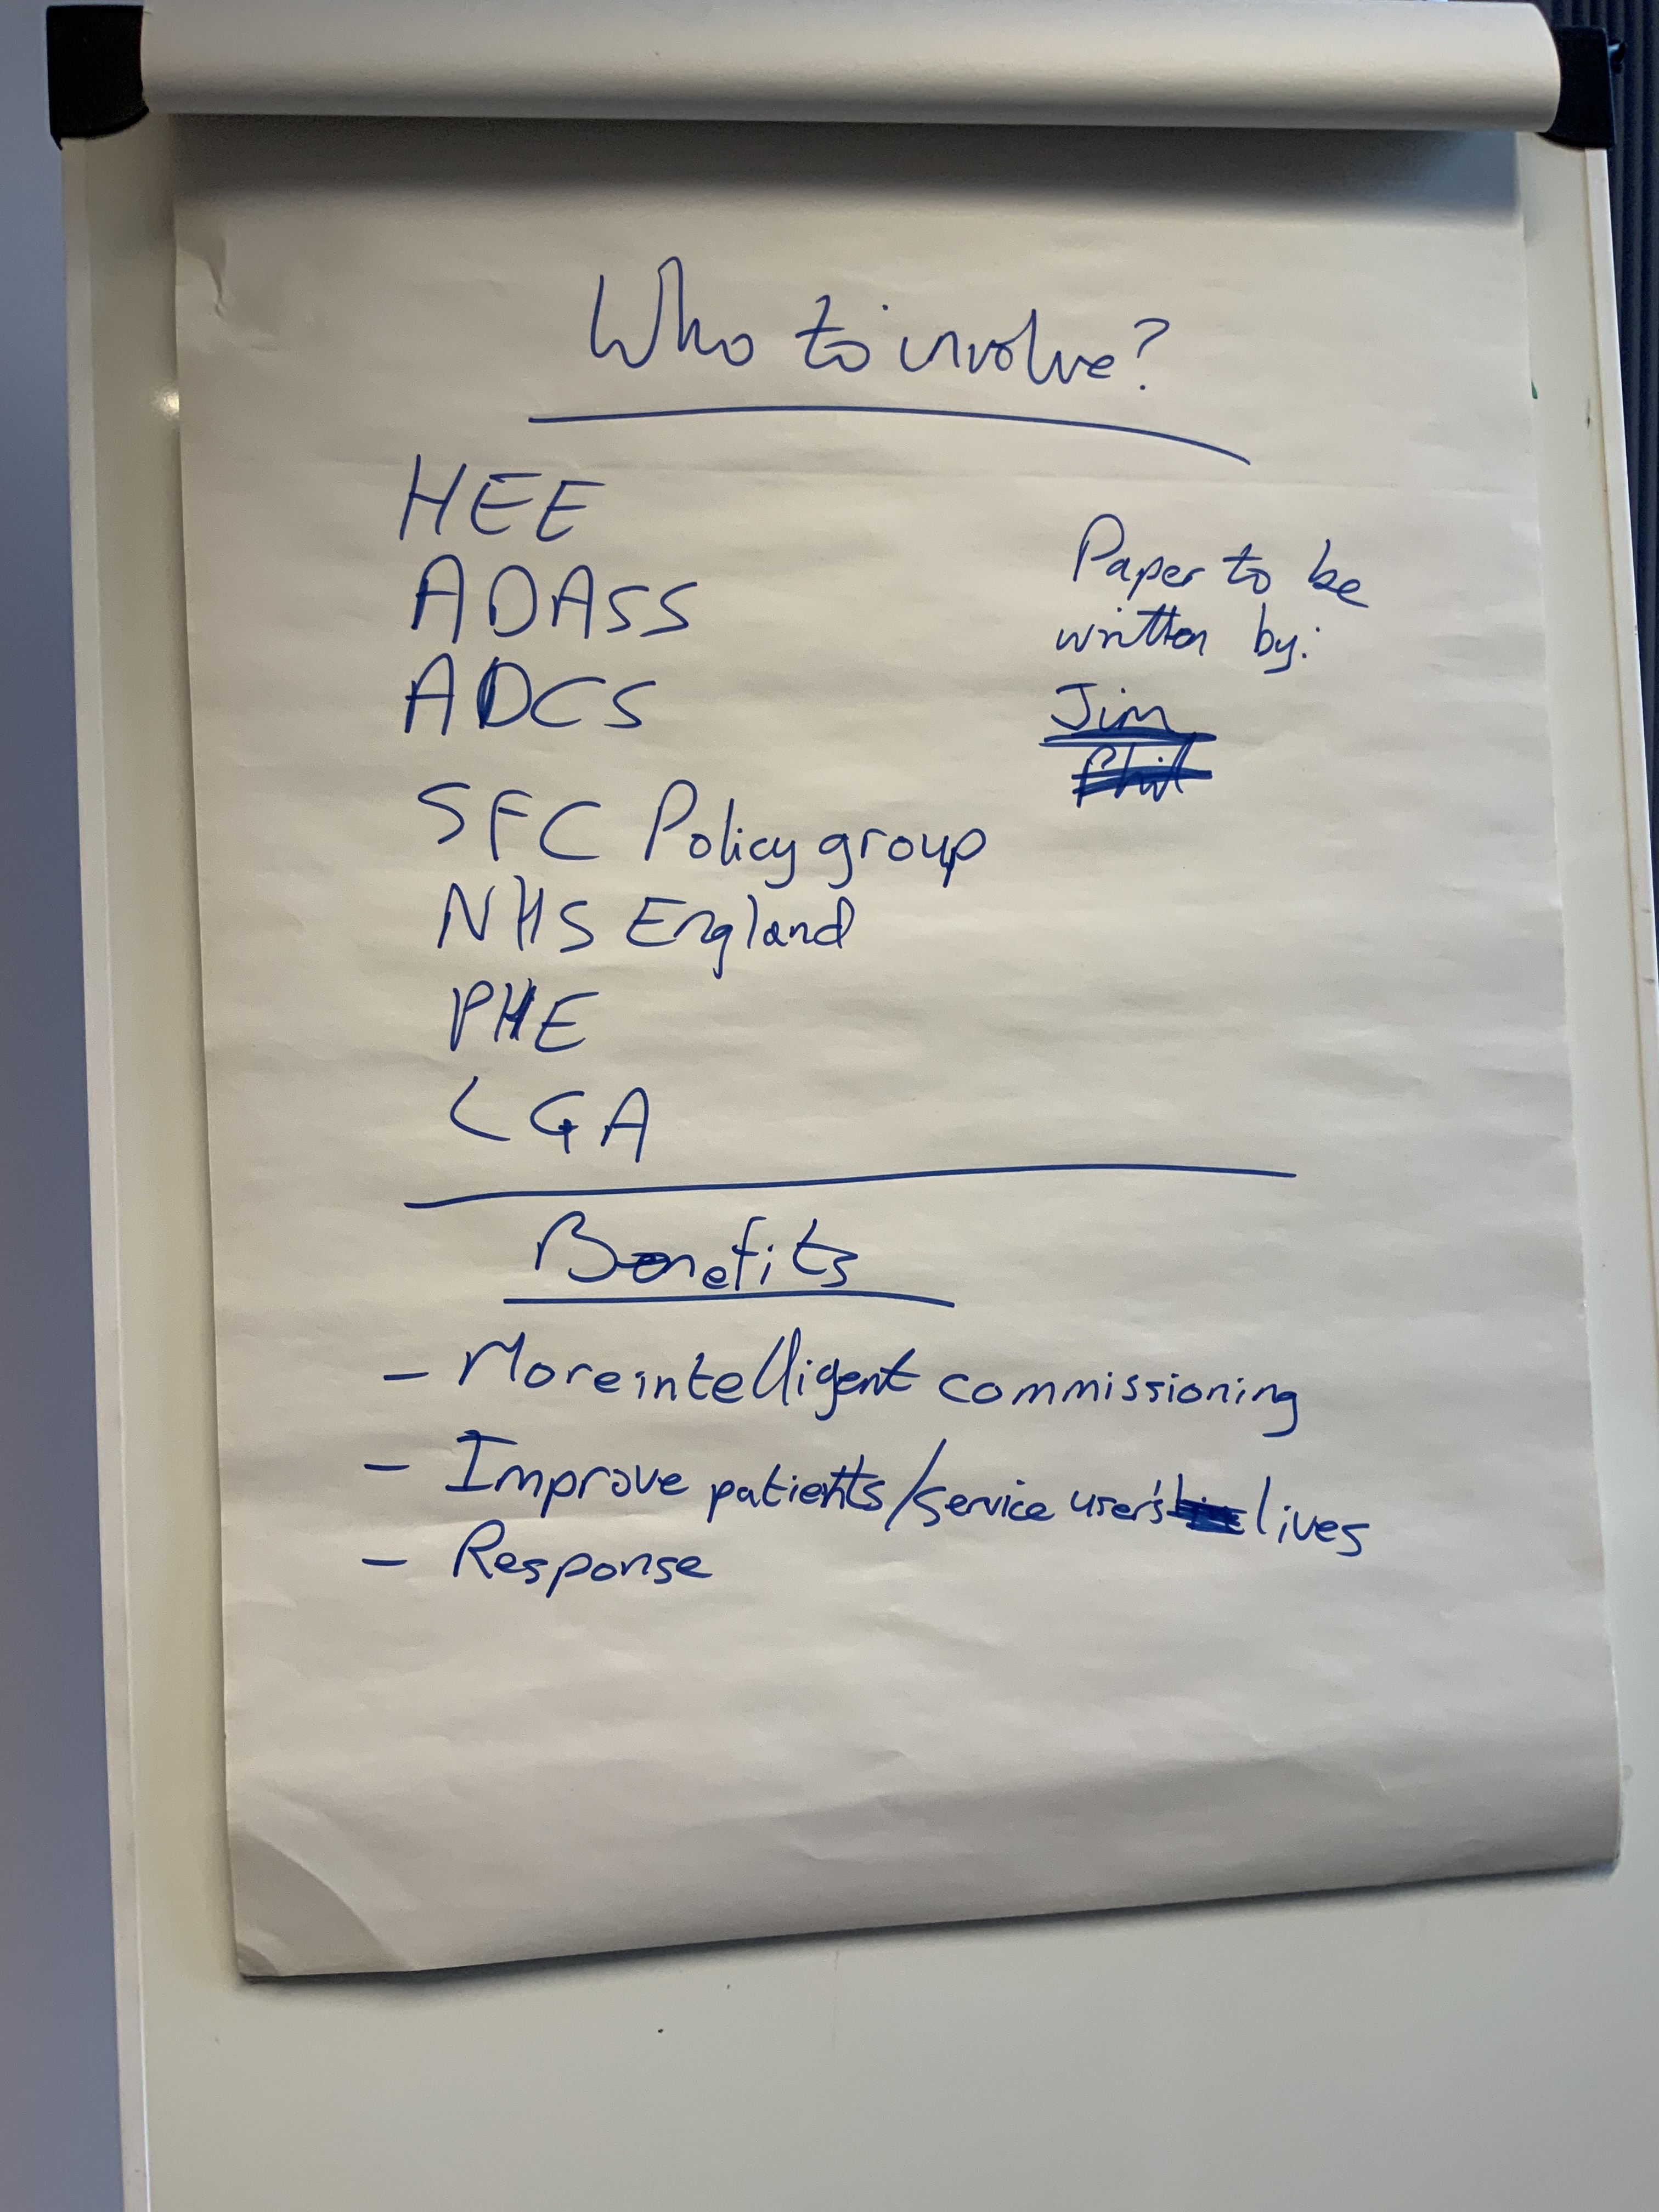 Who to involve?
HEE
ADASS
ADCS
SFC Policy group
NHS England
PHE
LGA
Paper to be
written by:
Jim
Phil
Benefits
- More intelligent commissioning
- Improve patients/service user's lives
- Response